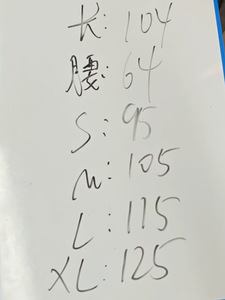 长: 104
腰: 64
S: 95
M: 105
L: 115
XL: 125